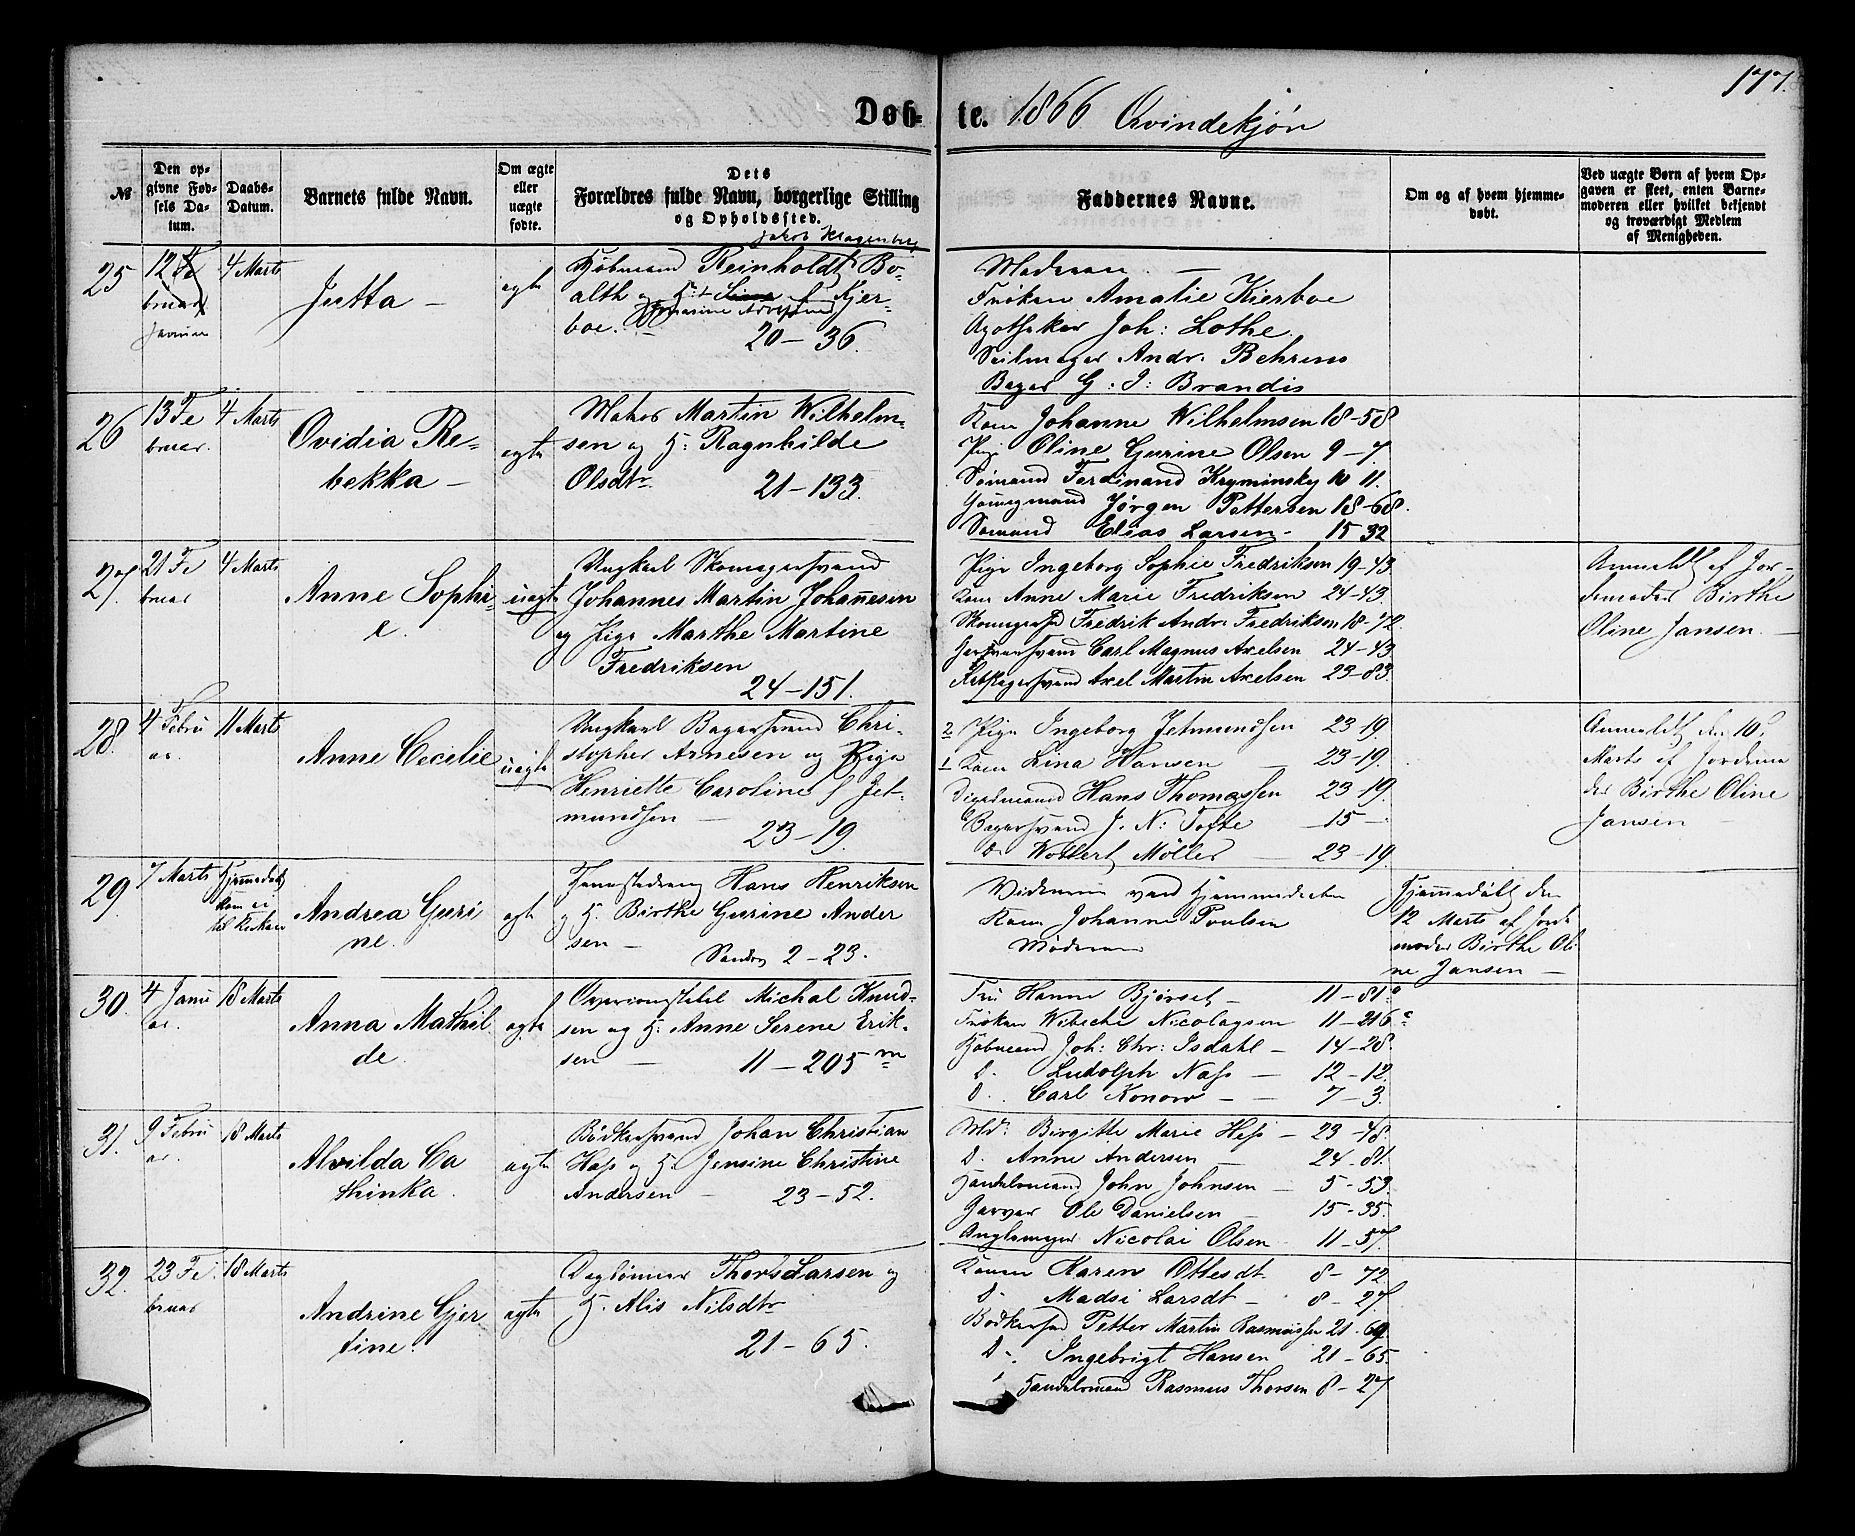 177.
Døb- te. 1866 Qvindekjøn
№
Den opgivne Fødsels Datum.
Daabs-Datum.
Barnets fulde Navn.
Om ægte eller uægte fødte.
Dets Forældres fulde Navn, borgerlige Stilling og Opholdssted.
Faddernes Navne.
Om og af hvem hjemmedøbt.
Ved uægte Børn af hvem Opgaven er skeet, enten Barnemoderen eller hvilket bekjendt og troværdigt Medlem af Menigheden.
25
12 Fe
bruar
Januar
4 Marts
Jutta —
ægte
Jakob Kragenberg
Kjøbmand Reinholdt Bo-
alth og H: f Kjer-
boe.
20 – 36.
Moderen. —
Frøken Amalie Kierboe
Apotheker Joh: Lothe
Seilmager Andr. Behrens
Bager G. J: Brandis
26
13 Fe
bruar.
4 Marts
Ovidia Re-
bekka —
ægte
Matros Martin Wilhelm-
sen og H. Ragnhilde
Olsdtr
21 – 133.
Kone Johanne Wilhelmsen 18-58
Pige Oline Gurine Olsen 9 – 7
Sømand Ferdinand Kryminsky 10 11.
Jørgen Pettersen 18-68.
Sømand Elias Larsen – 15 32
27.
21 Fe
bruar
4 Marts
Anne Sophi-
e.
uægte
Ungkarl Skomagersvend
Johannes Martin Johannesen
og Pige Marthe Martine
Fredriksen
24 – 151.
Pige Ingeborg Sophie Fredriksen 19-43
Kone Anne Marie Fredriksen 24-43.
Fredrik Andr. Fredriksen 18-72.
Carl Magnus Axelsen 24-43
Axel Martin Axelsen 23-83.
Anmeldt af Jor-
demoder Birthe
Oline Jansen. —
28.
4 Febru
ar.
11 Marts
Anne Cecilie
uægte
Ungkarl Bagersvend Chri-
stopher Arnesen og Pige
Henriette Caroline f Jet-
mundsen —
23 – 19.
2 Pige Ingeborg Jetmundsen 23-19.
1 Kone Lina Hansen — 23-19.
Hans Thomassen 23-19.
Bagersvend J. N: Tofte — 15 –
Do Wollert Møller — 23-19.
Anmeldt den 10de
Marts af Jordemo
der Birthe Oline
Jansen —
29
7 Marts
Hjemmedøbt
kom ei
til Kirken
Andrea Guri
ne.
ægte
Hans Henriksen
og H. Birthe Gurine Ander
sen —
Sandv 2 – 23.
Vidnerne ved Hjemmedaaben
Kone Johanne Poulsen
Moderen
Hjemmedøbt den
12 Marts af Jorde
moder Birthe Oli
ne Jansen —
30.
4 Janu
ar.
18 Marts
Anna Mathil
de.
ægte
Michal Knud-
sen og H. Anne Serene Erik-
sen —
11 – 205 m
Fru Hanne Bjørset — 11-81.a
Frøken Wibeche Nicolaysen 11-216 c
Kjøbmand Joh: Chr: Isdahl — 14-28.
D. Ludolph Næss — 12-12.
D. Carl Konow — 7-3
31.
9 Febru
ar
18 Marts
Alvilda Ca
thinka.
ægte
Bødkersvend Johan Christian
Hess og H. Jensine Christine
Andersen — 23-52.
Md: Birgitte Marie Hess — 23-48.
D. Anne Andersen — 24-81.
Handelsmand John Johnsen — 5-53.
Garver Ole Danielsen — 15-35.
Nicolai Olsen 11-57.
32.
23 Fe.
bruar
18 Marts
Andrine Gjer
tine.
ægte
Daglønner Thors Larsen og
H. Alis Nilsdtr
21 – 65.
Konen Karen Ottesdt 8-72.
D. Madsi Larsdt — 8-27.
Bødkersvd Petter Martin Rasmussen 21-69.
D. Ingebrigt Hansen 21-65
Handelsmand Rasmus Thorsen 8-27